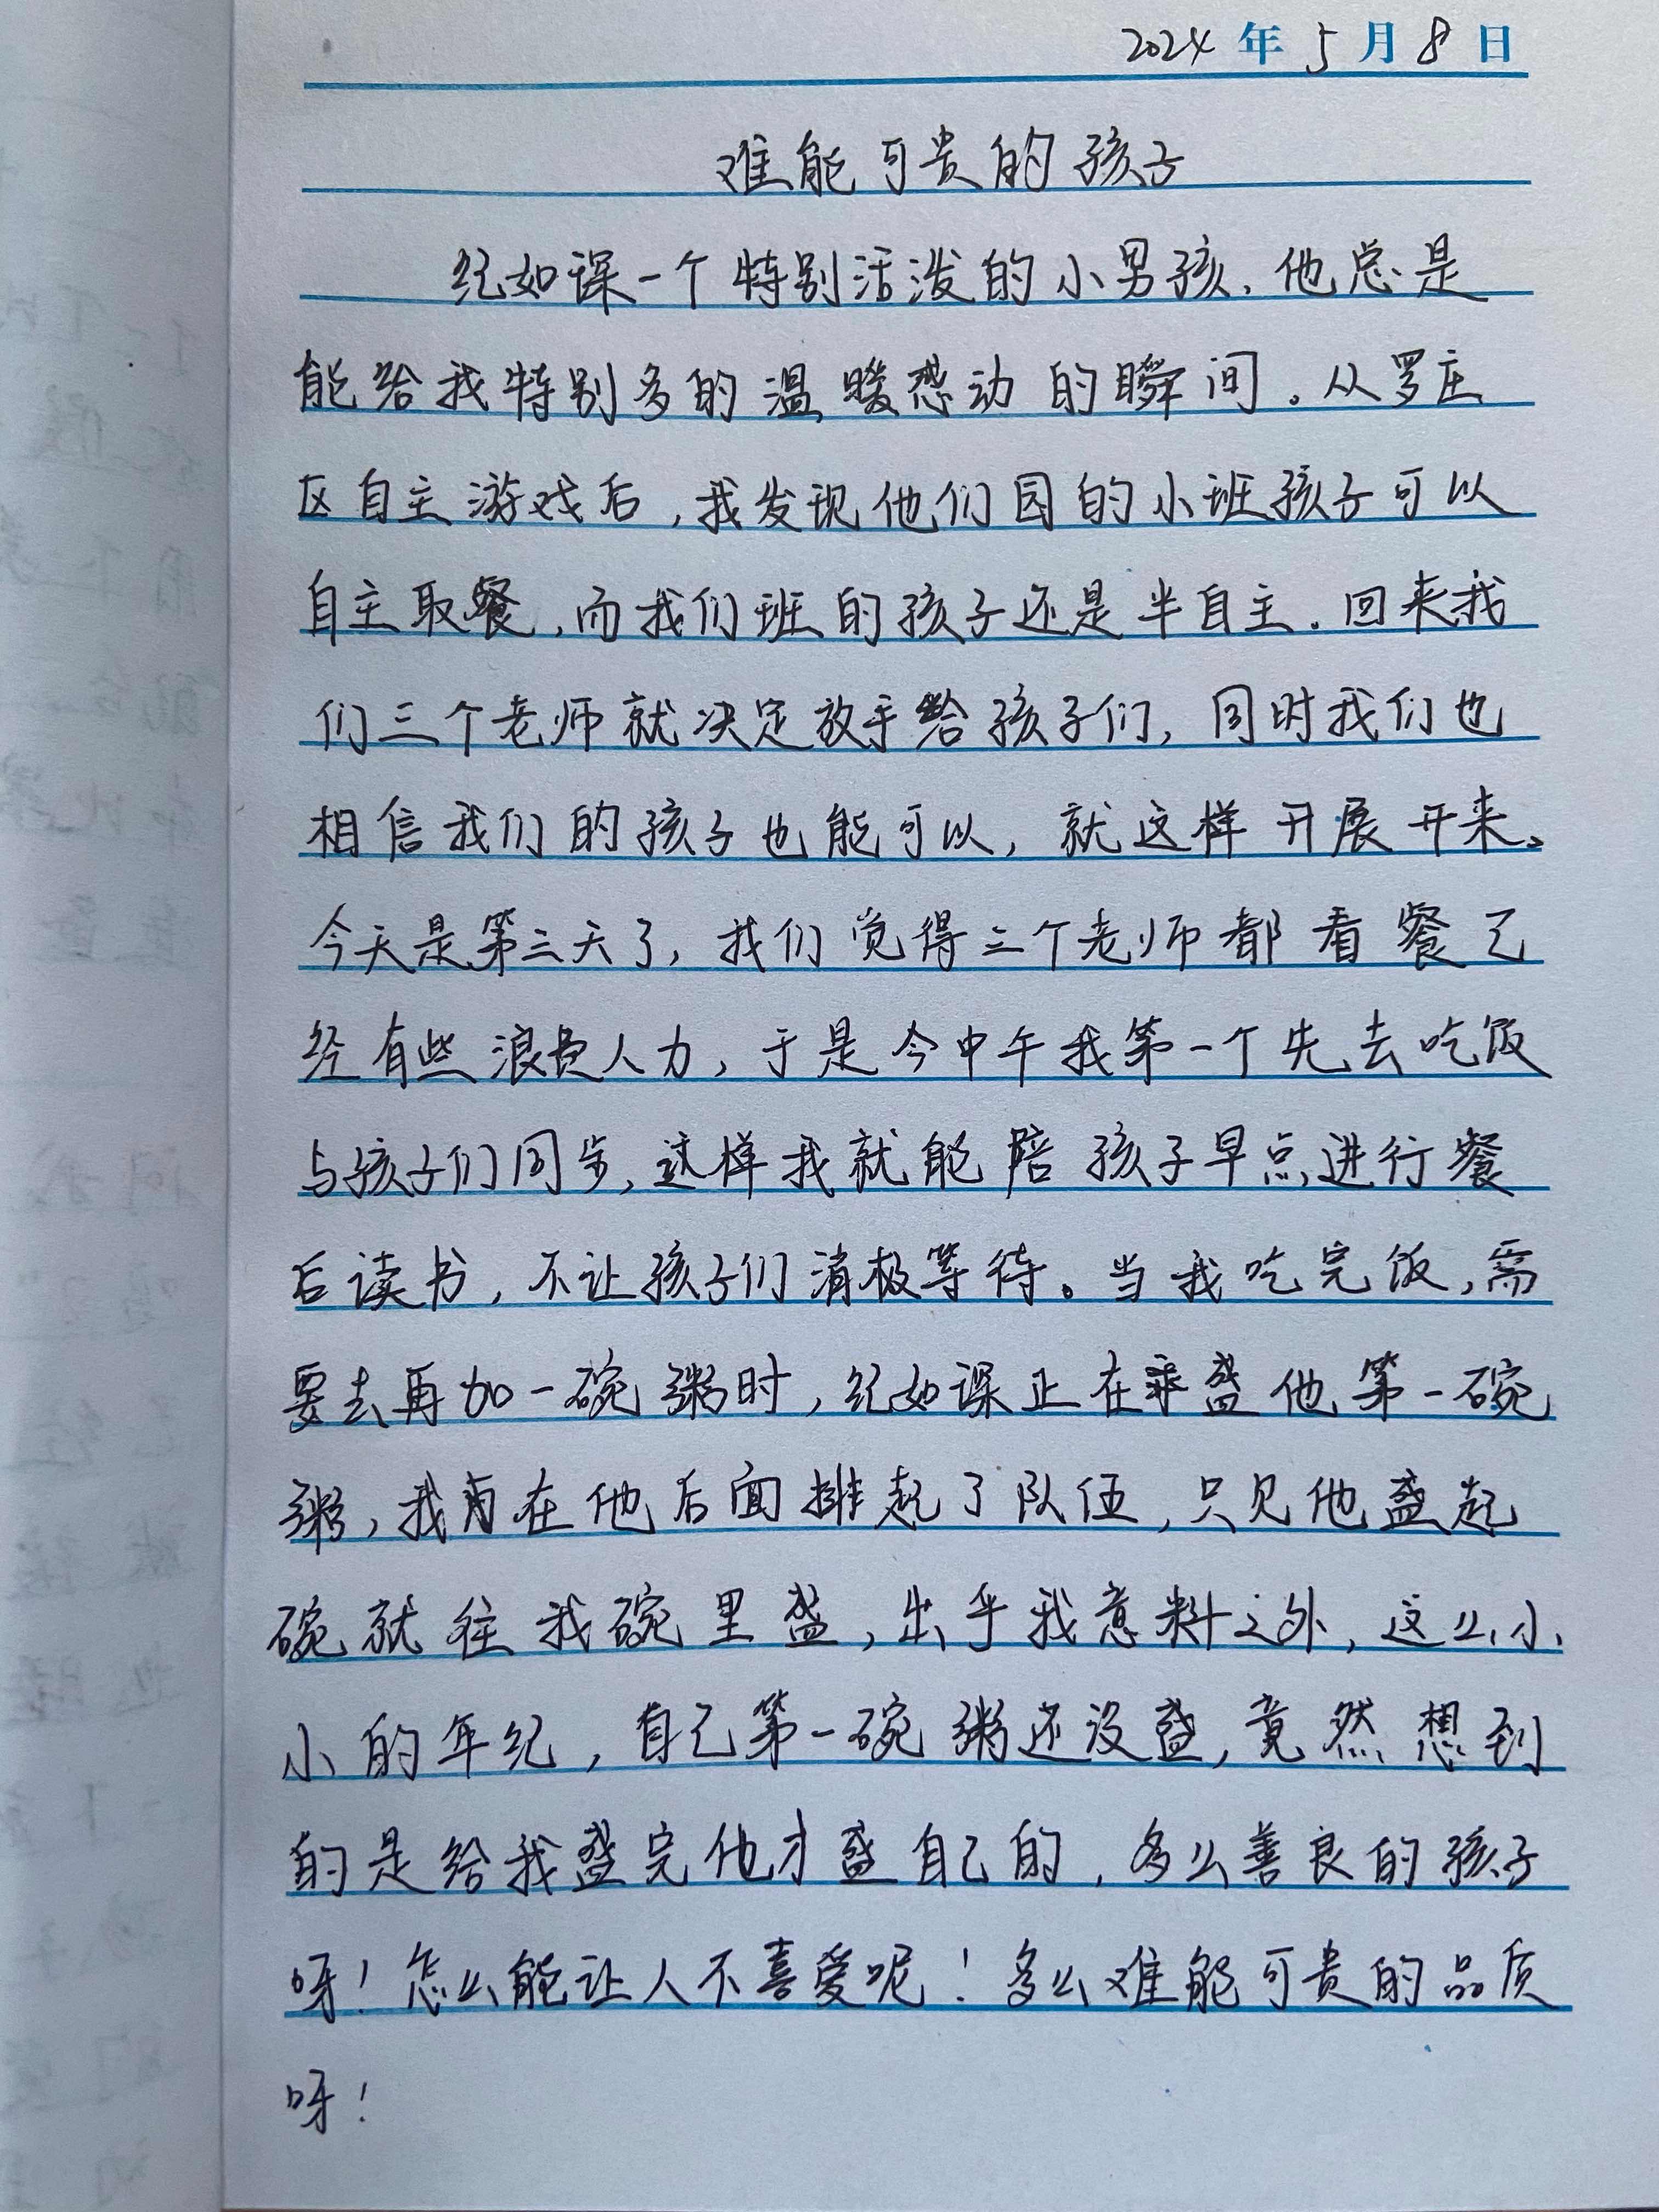 2024年5月8日
难能可贵的孩子
纪如谋一个特别活泼的小男孩，他总是
能给我特别多的温暖感动的瞬间。从罗庄
区自主游戏后，我发现他们园的小班孩子可以
自主取餐，而我们班的孩子还是半自主．回来我
们三个老师就决定放手给孩子们，同时我们也
相信我们的孩子也能可以，就这样开展开来。
今天是第三天了，我们觉得三个老师都看餐已
经有些浪费人力，于是今中午我第一个先去吃饭
与孩子们同步，这样我就能陪孩子早点进行餐
后读书，不让孩子们消极等待。当我吃完饭，需
要去再加一碗粥时，纪如谋正在乘盛他第一碗
粥，我在他后面排起了队伍，只见他盛起
碗就往我碗里盛，出乎我意料之外，这么小
小的年纪，自己第一碗粥还没盛，竟然想到
的是给我盛完他才盛自己的，多么善良的孩子
呀！怎么能让人不喜爱呢！多么难能可贵的品质
呀！